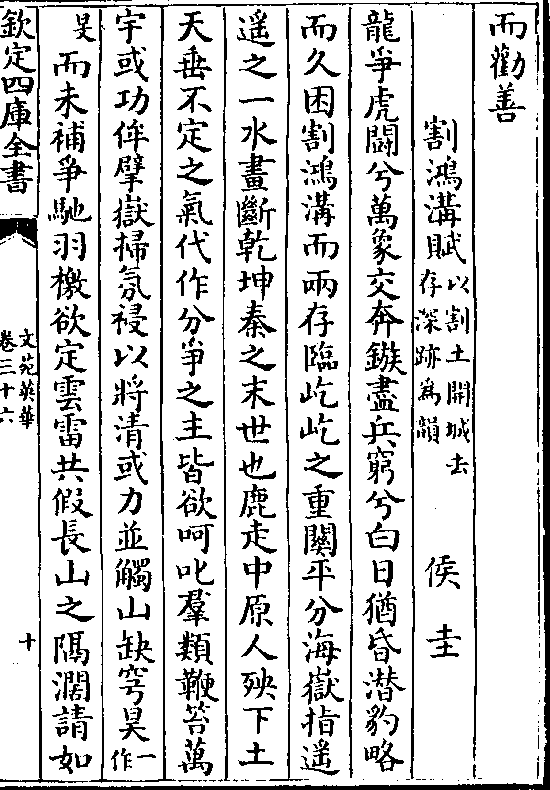 而勸善
割鴻溝賦以割土開城去存深跡為韻 侯圭
龍爭虎鬬兮萬象交奔鏃盡兵窮兮白日猶昏潛豹略
而久困割鴻溝而兩存臨屹屹之重關平分海嶽指遥
遥之一水畫斷乾坤秦之末世也鹿走中原人殃下土
天垂不定之氣代作分爭之主皆欲呵叱羣類鞭笞萬
宇或功侔擘嶽掃氛祲以將清或力並觸山缺穹昊一作
旻而未補爭馳羽檄欲定雲雷共假長山之隅濶請如
欽定四庫全書
文苑英華
卷三十六
十